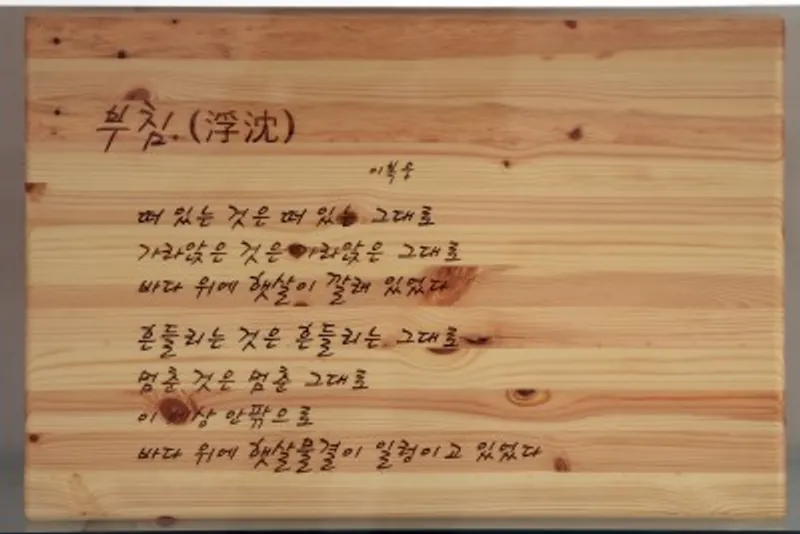 부침.(浮沈)
이복웅
떠 있는 것은 떠 있는 그대로
가라앉은 것은 가라앉은 그대로
바다 위에 햇살이 깔려 있었다
흔들리는 것은 흔들리는 그대로
멈춘 것은 멈춘 그대로
이 세상 안팎으로
바다 위에 햇살물결이 일렁이고 있었다